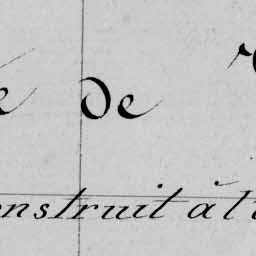 de
onstruit à l